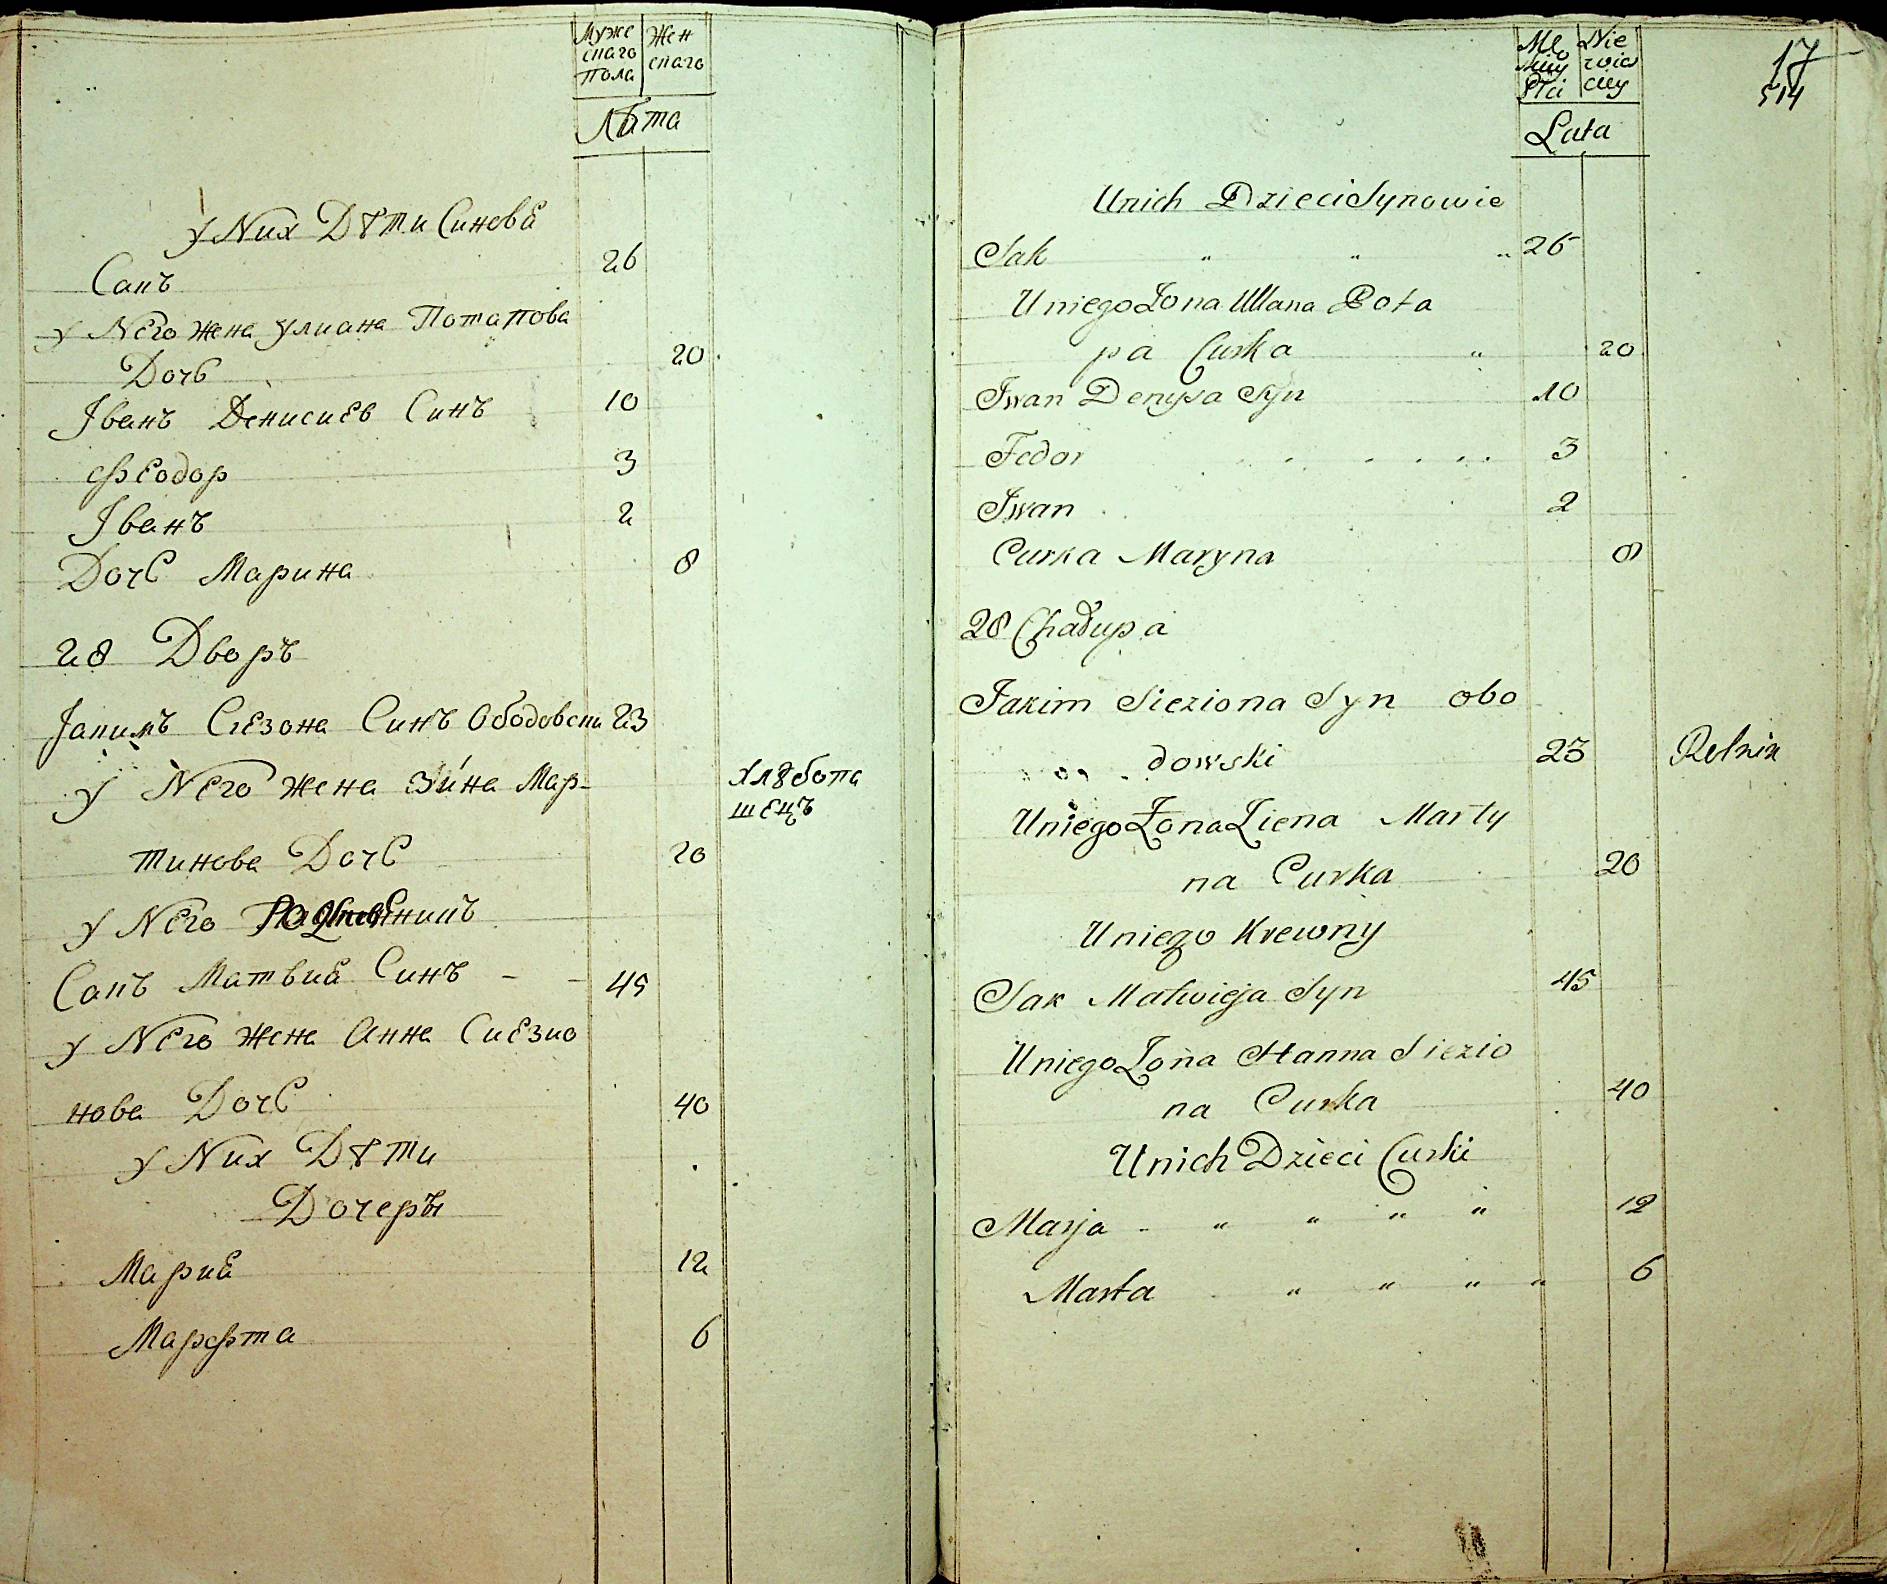 Муже Жен
снаго снаго
пола
Лѣта
у Них Дѣти Синовѣ
Сакъ 26
у Него жена Улиана Потапова
Дочь 20
Іванъ Денисиев Синъ 10
Феодор 3
Іванъ 2
Дочь Марина 8
28 Дворъ
Іакимъ Сиезона Синъ Ободовски 23
у Него жена Зина Мар-
хлѣбопа
шецъ
тинова Дочь 20
у Него
Сакъ Матвиа Синъ - - 45
у Него жена Анна Сиезио
нова Дочь 40
у Них Дѣти
Дочеры
Мариа 12
Марфта 6
17
514
Lata
Unich Dzieci Synowie
Sak " " " 26
Uniego Żona Ullana Pota
pa Curka " 20
Iwan Denysa Syn 10
Fedor 3
Iwan 2
Curka Maryna 8
28 Chałupa
Jakim Sieziona Syn obo
dowski 23 Rolnik
Uniego Żona Ziena Marty
na Curka 20
Uniego Krewny
Sak Matwieja Syn 45
Uniego Żona Hanna Siezio
na Curka 40
Unich Dzieci Curki
Marja - " " " " 12
Marta " " " " 6